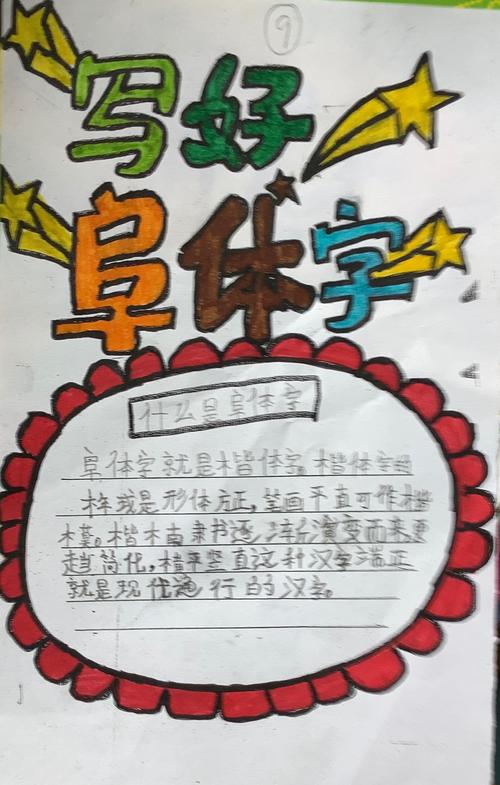 9
写好
阜体字
什么是阜体字
阜体字就是楷体字。楷体字
是形体方正,笔画平直可作楷
楷 隶书逐渐演变而来更
趋简化,横平竖直这种汉字端正
就是现代通行的汉字。